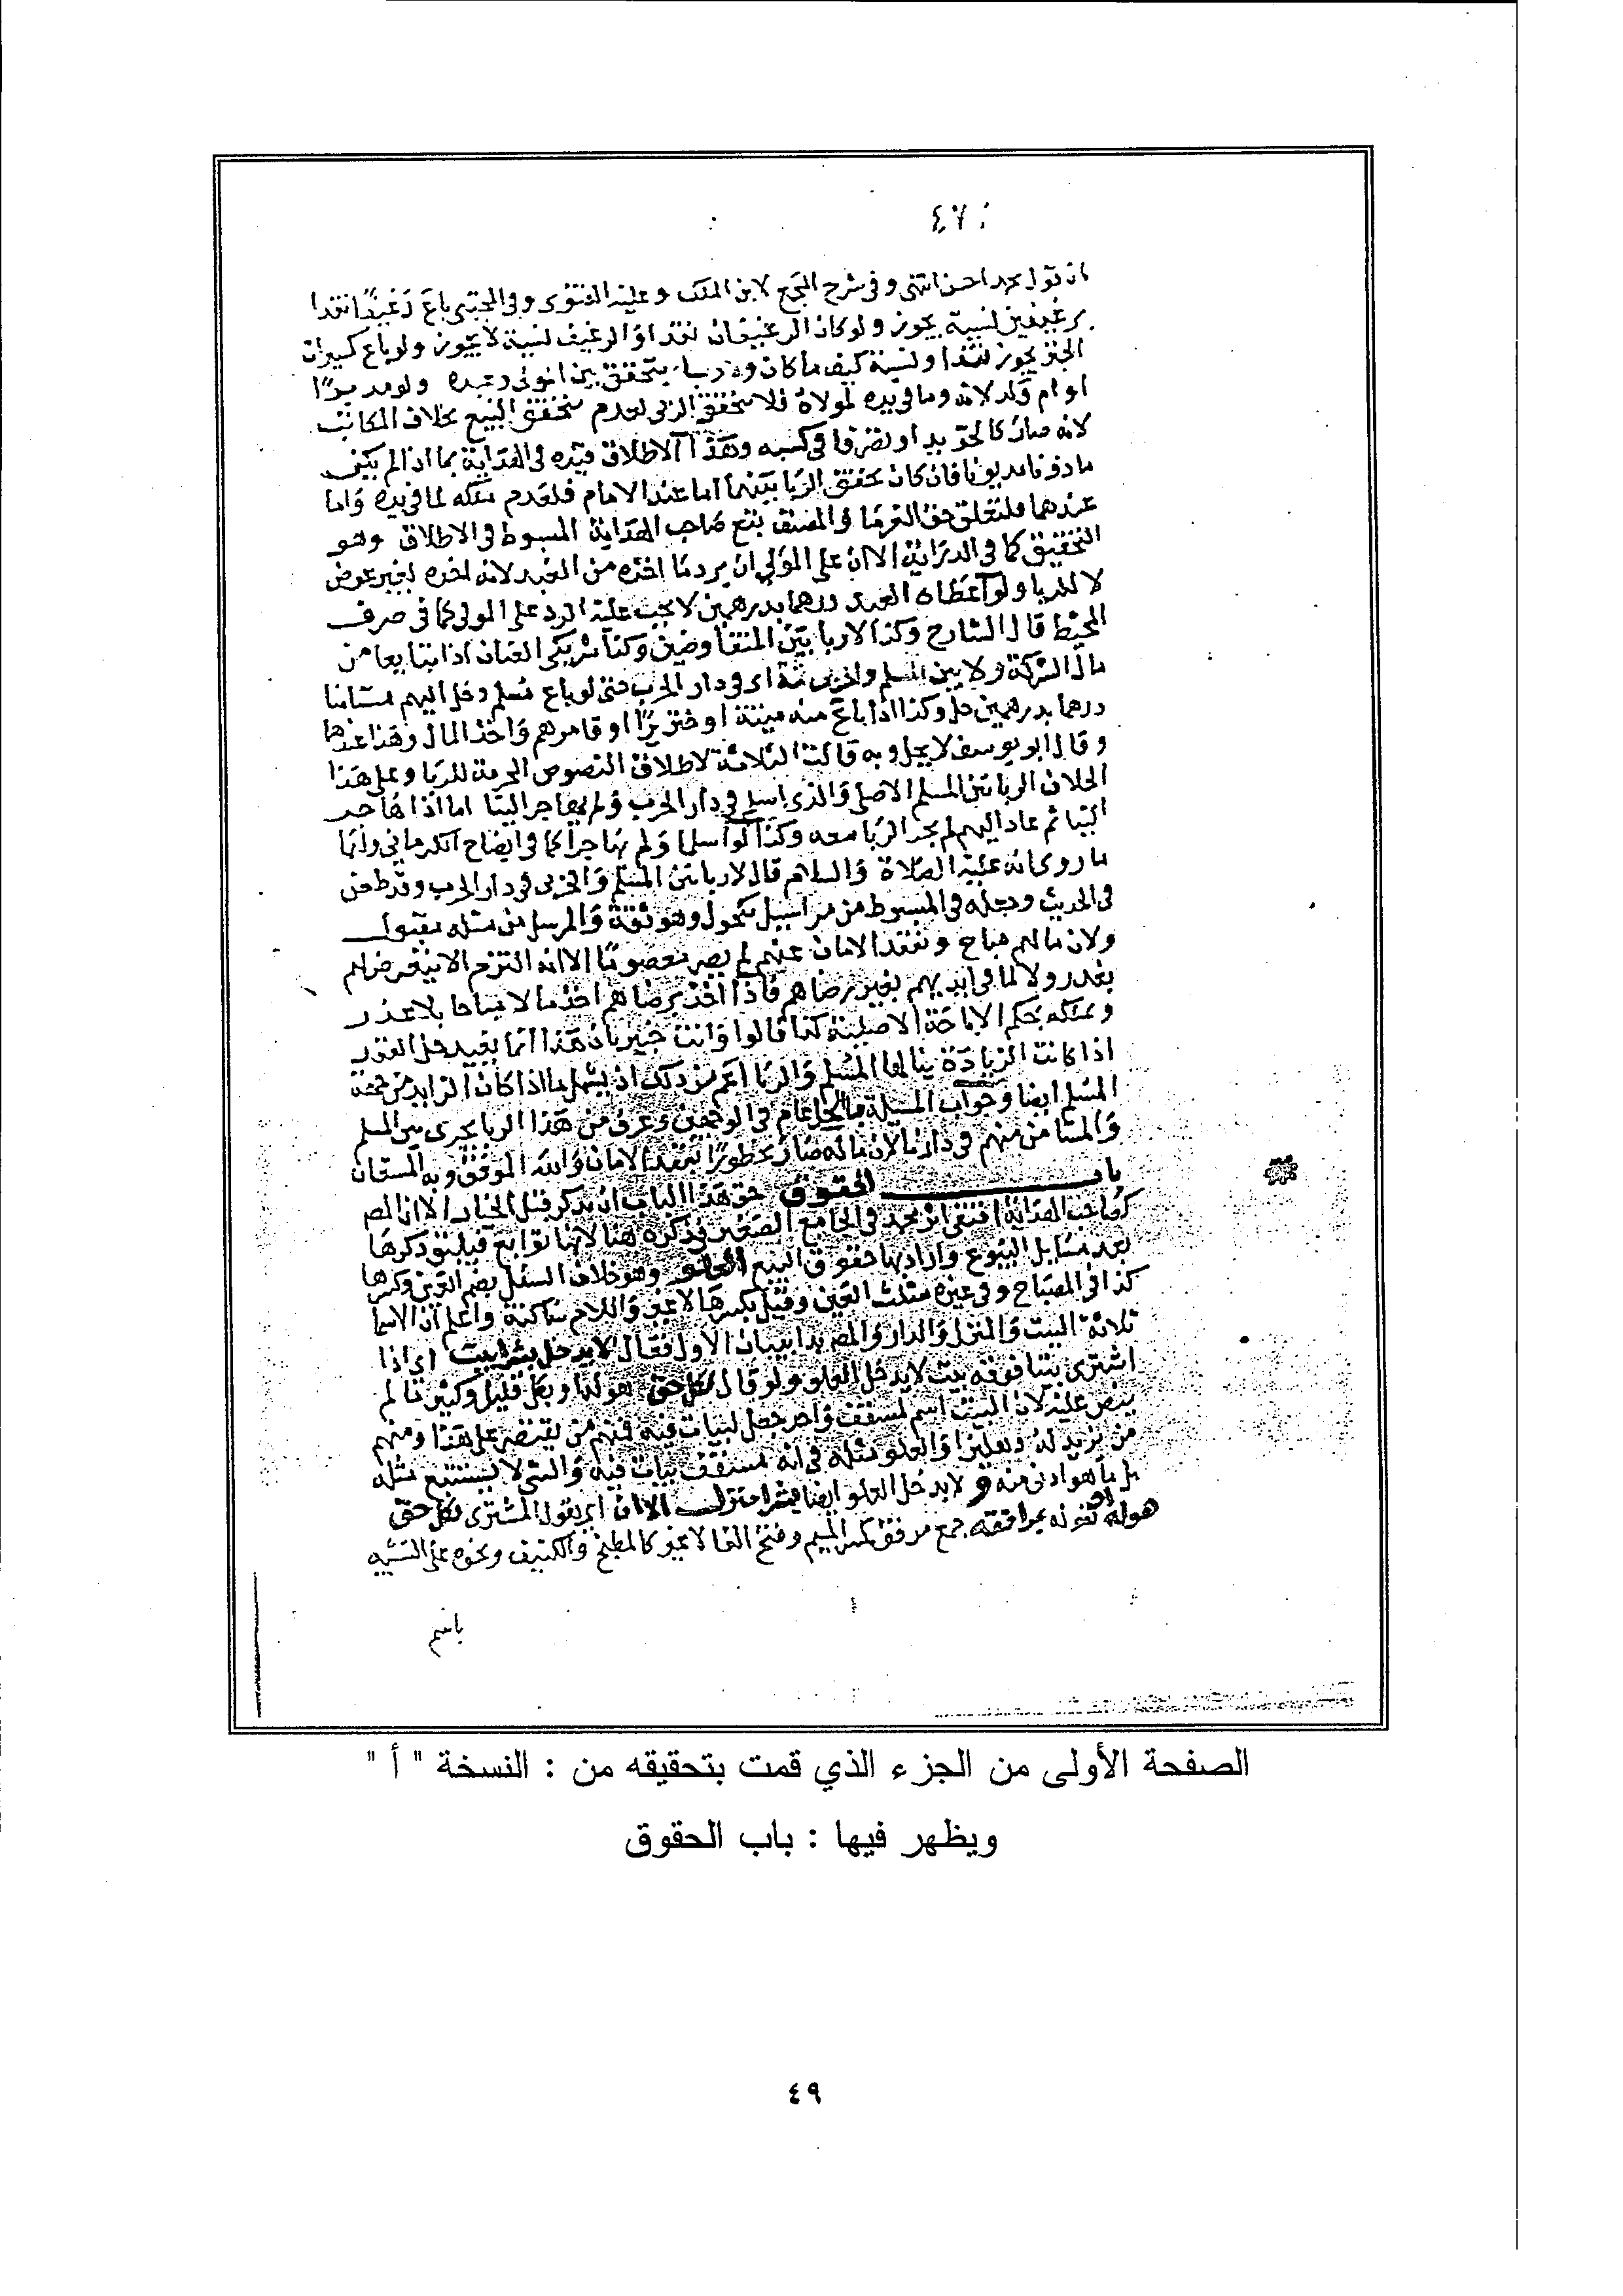 ٤٧
ان قول محمد احسن انتهى وفي شرح المجمع لابن الملك وعليه الفتوى وفي المجتبى باع رغيفا نقدا
برغيفين نسية يجوز ولو كان الرغيفان نقدا والرغيف نسية لا يجوز ولو باع كسيرات
الخبز يجوز نقدا ونسية كيف ما كان ولا ربا يتحقق بين المولى وعبده ولو مدبرا
او ام ولد لانه وما في يده لمولاه فلا يتحقق الربى لعدم تحقق البيع بخلاف المكاتب
لانه صار كالحر يدا وتصرفا في كسبه وهذا الاطلاق قيده في الهداية بما اذا لم يكن
ماذونا مديونا فان كان تحقق الربا بينهما اما عند الامام فلعدم ملكه لما في يده واما
عندهما فلتعلق حق الغرما والمصنف تبع صاحب الهداية المبسوط في الاطلاق وهو
التحقيق كما في الدراية الا ان على المولى ان يرد ما اخذه من العبد لانه اخذه بغير عوض
لا للربا ولو اعطاه العبد درهما بدرهمين لا يجب عليه الرد على المولى كما في صرف
المحيط قال الشارح وكذا لا ربا بين المتفاوضين وكذا شريكي العنان اذا تبايعا من
مال الشركة ولا بين المسلم والحربي ثمة اي في دار الحرب حتى لو باع مسلم دخل اليهم مستامنا
درهما بدرهمين حل وكذا اذا باع منه ميتة او خنزيرا او قامرهم واخذ المال وهذا عندهما
وقال ابو يوسف لا يحل وبه قالت الثلاثة لاطلاق النصوص المحرمة للربا وعلى هذا
الخلاف الربا بين المسلم الاصلي والذي اسلم في دار الحرب ولم يهاجر الينا اما اذا هاجر
الينا ثم عاد اليهم لم يجز الربا معه وكذا لو اسلما ولم يهاجرا كما في ايضاح الكرماني ولهما
ما روى انه عليه الصلاة والسلام قال لا ربا بين المسلم والحربي في دار الحرب وقد طعن
في الحديث وجعله في المبسوط من مراسيل مكحول وهو ثقة والمرسل من مثله مقبول
ولان مالهم مباح وبعقد الامان عنهم لم يصر معصوما الا انه التزم الا يتعرض لهم
بغدر ولا لما في ايديهم بغير رضاهم فاذا اخذ برضاهم اخذ مالا مباحا بلا عذر
وتملكه بحكم الاباحة الاصلية كذا قالوا وانت خبير بان هذا انما يفيد حل العقد
اذا كانت الزيادة ينالها المسلم والربا اعم من ذلك اذ يشمل ما اذا كان الزايد من جهة
المسلم ايضا وجواب المسيلة بالحل عام في الوجهين وعرف من هذا الربا يجري بين المسلم
والمستامن منهم في دارنا لان ماله صار محظورا بعقد الامان والله الموفق وبه المستعان
باب الحقوق حق هذا الباب ان يذكر قبل الخيار الا ان المص
كصاحب الهداية اقتفى اثر محمد في الجامع الصغير في ذكره هنا لانها توابع فيليق ذكرها
بعد مسايل البيوع واراد بها حقوق البيع العلو وهو خلاف السفل بضم العين وكسرها
كذا في المصباح وفي غيره مثلث العين وقيل بكسرها لا غير واللام ساكنة واعلم ان الاسما
ثلاثة البيت والمنزل والدار والمص بدا ببيان الاول فقال لا يدخل بشرا بيت اي اذا
اشترى بيتا فوقه بيت لا يدخل العلو ولو قال بكل حق هو له او بكل قليل وكثير ما لم
ينص عليه لان البيت اسم لمسقف واحد جعل ليبات فيه فمنهم من يقتصر على هذا ومنهم
من يزيد له دهليزا والعلو مثله في انه مسقف يبات فيه والشي لا يستتبع مثله
بل ما هو ادنى منه و لا يدخل العلو ايضا بشرا منزل الا ان اي يقول المشتري بكل حق
هو له او بقوله بمرافقه جمع مرفق بكسر الميم وفتح الفا لا غير كالمطبخ والكنيف ونحوه على التشبيه
باسم
الصفحة الأولى من الجزء الذي قمت بتحقيقه من : النسخة " أ "
ويظهر فيها : باب الحقوق
٤٩